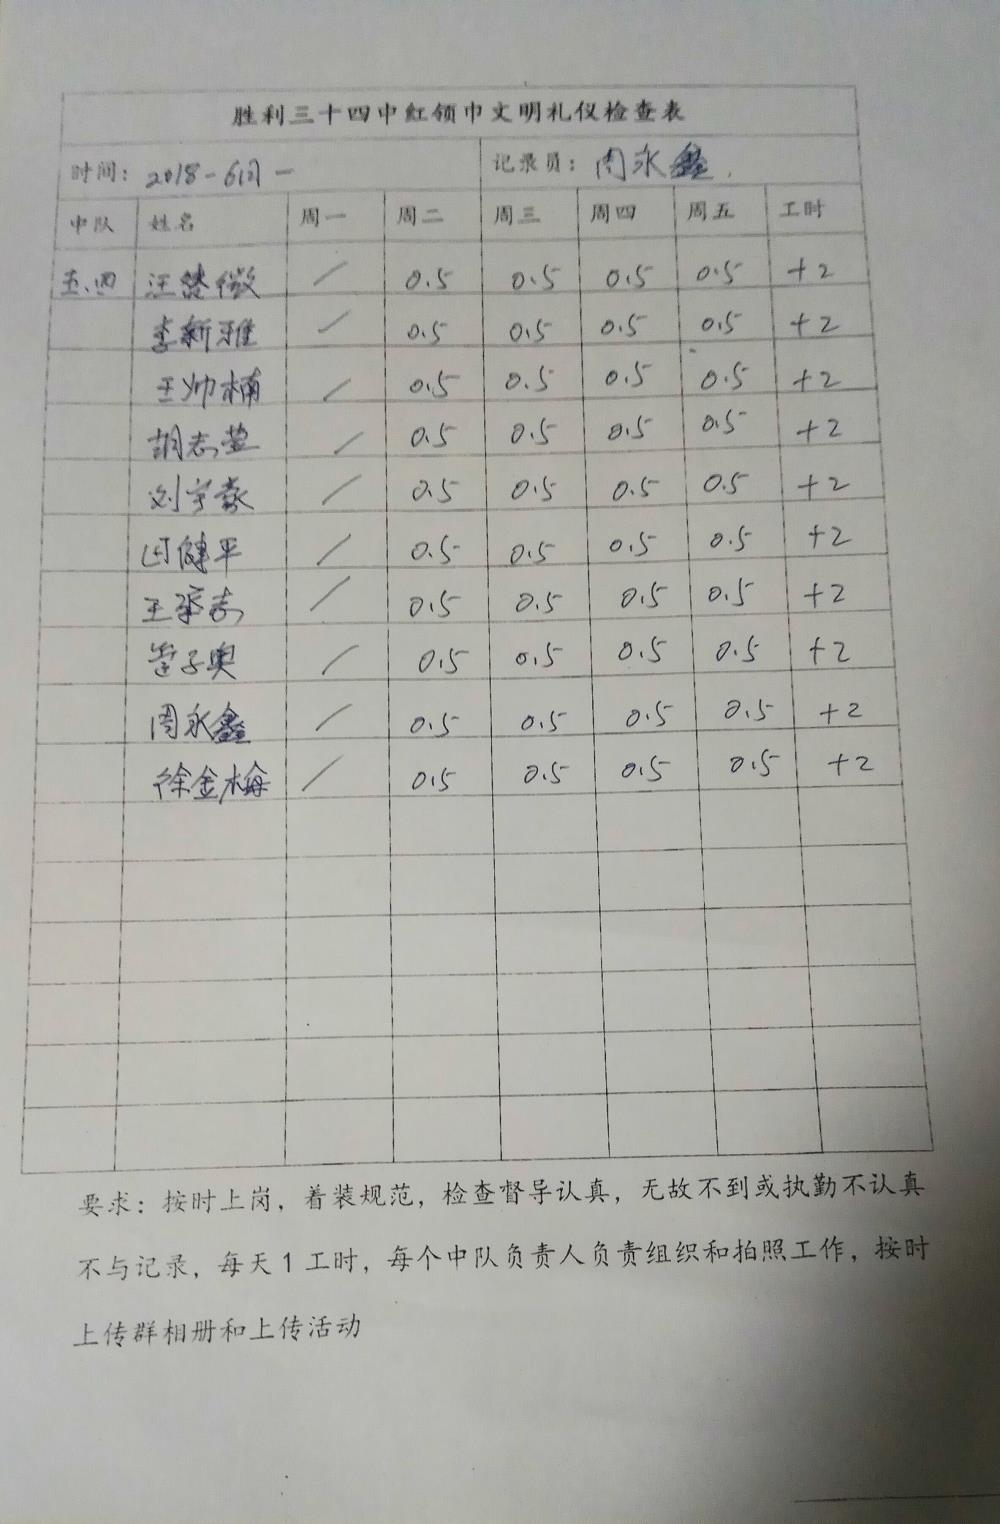 胜利三十四中红领巾文明礼仪检查表
时间：2018-6 一 记录员：周永鑫
中队 姓名 周一 周二 周三 周四 周五 工时
五、四 汪楚微 / 0.5 0.5 0.5 0.5 +2
李新雅 / 0.5 0.5 0.5 0.5 +2
王帅楠 / 0.5 0.5 0.5 0.5 +2
胡志萱 / 0.5 0.5 0.5 0.5 +2
刘宇豪 / 0.5 0.5 0.5 0.5 +2
田健平 / 0.5 0.5 0.5 0.5 +2
王丞志 / 0.5 0.5 0.5 0.5 +2
管子奥 / 0.5 0.5 0.5 0.5 +2
周永鑫 / 0.5 0.5 0.5 0.5 +2
徐金梅 / 0.5 0.5 0.5 0.5 +2
要求：按时上岗，着装规范，检查督导认真，无故不到或执勤不认真
不与记录，每天1工时，每个中队负责人负责组织和拍照工作，按时
上传群相册和上传活动